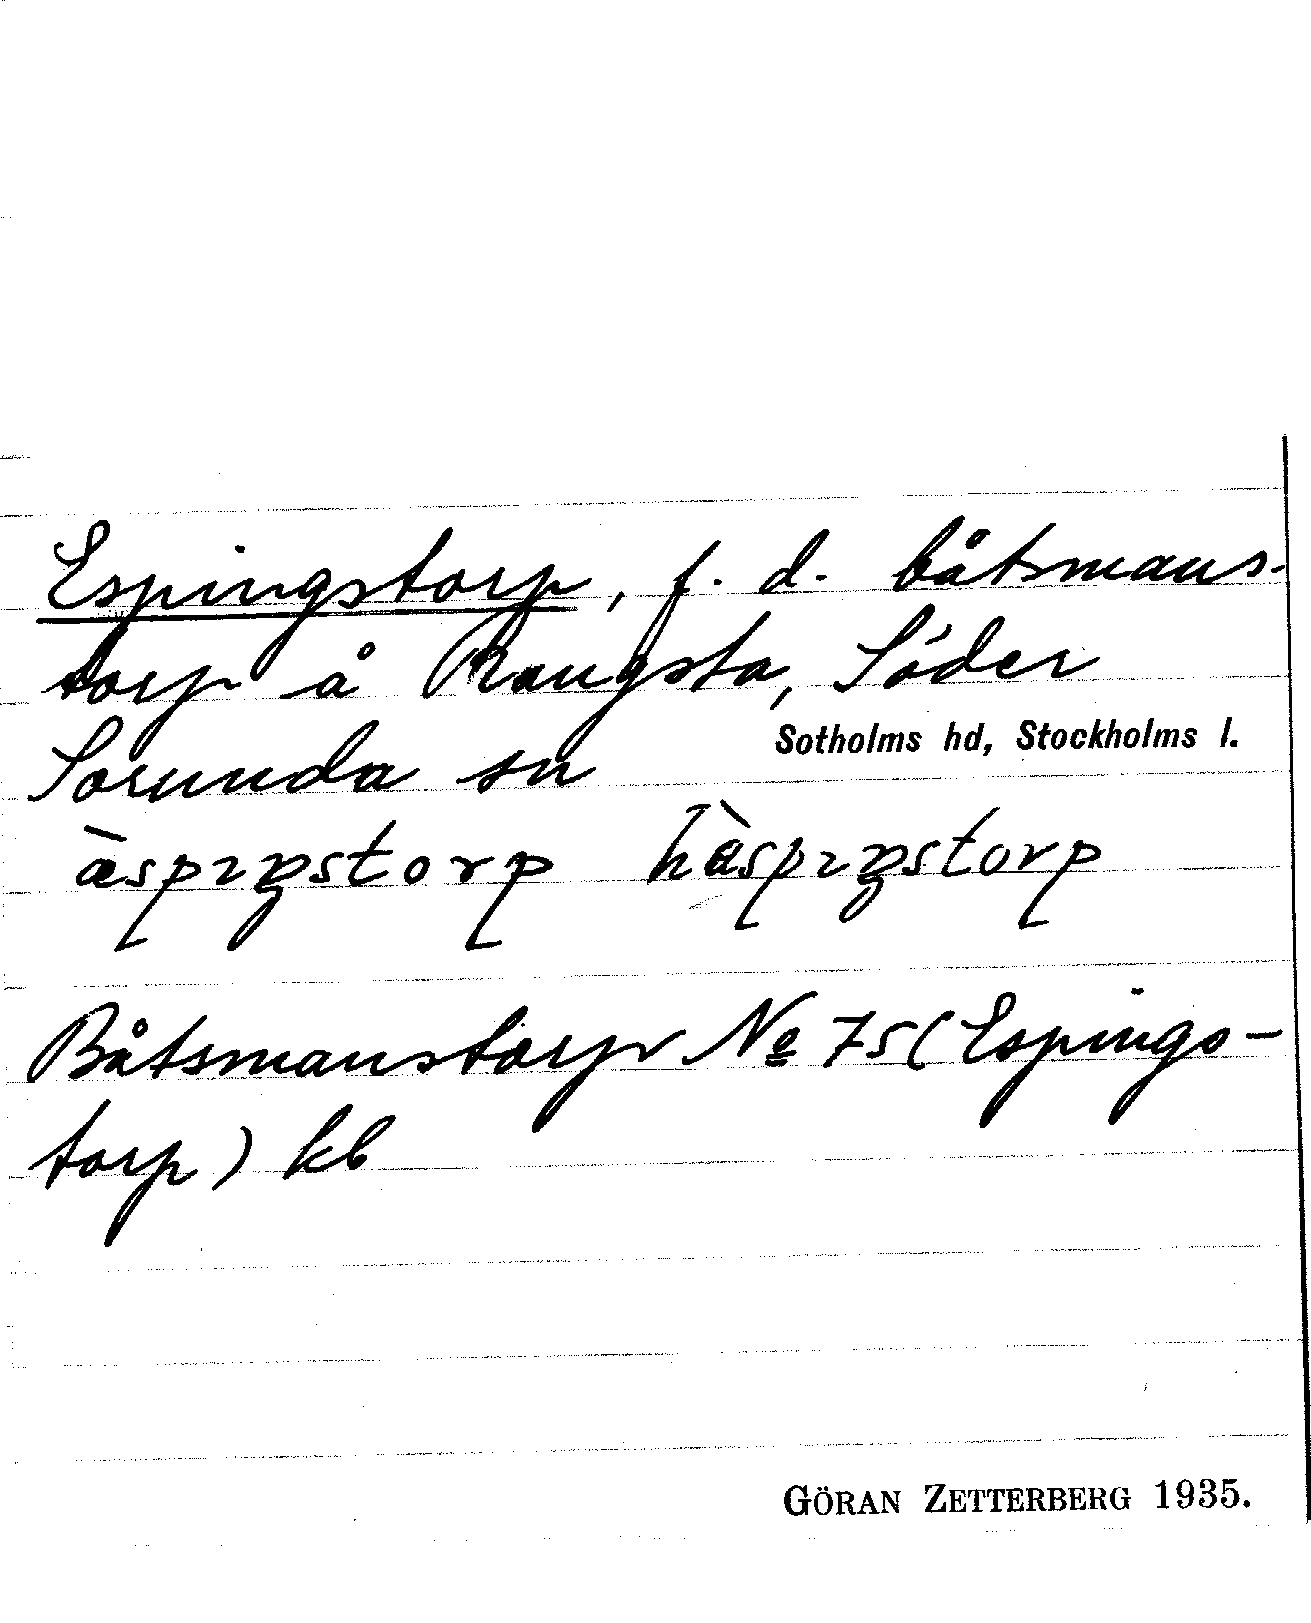 Espingstorp, f. d. båtsmans-
torp å Rangsta, Söder
Sorunda sn Sotholms hd, Stockholms l.
æ̀spıŋstorp hæ̀spıŋstorp
Båtsmanstorp No 75 (Espings-
torp) kb
GÖRAN ZETTERBERG 1935.